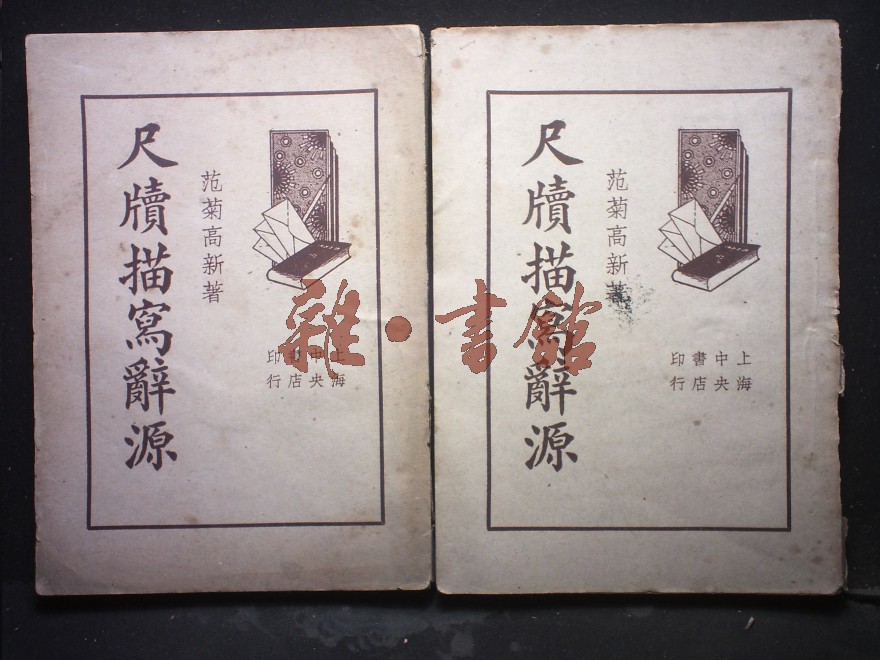 尺牘描寫辭源
范菊高新著
上海
中央
書店
印行
尺牘描寫辭源
范菊高新著
上海
中央
書店
印行
雜·書館